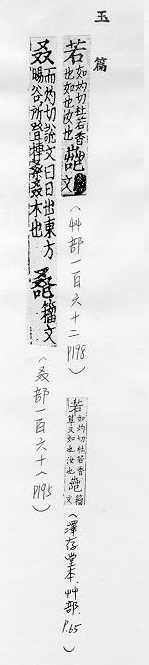 玉篇
若 如灼切杜若香
也如也汝也 文
（艸部一百六十二 P198）
叒 而灼切說文曰日出東方
暘谷所登榑桑叒木也 籀文
（叒部一百六十八 P195）
若 如灼切杜若香
草又如也汝也 籀文
（澤存堂本．艸部．P.65）